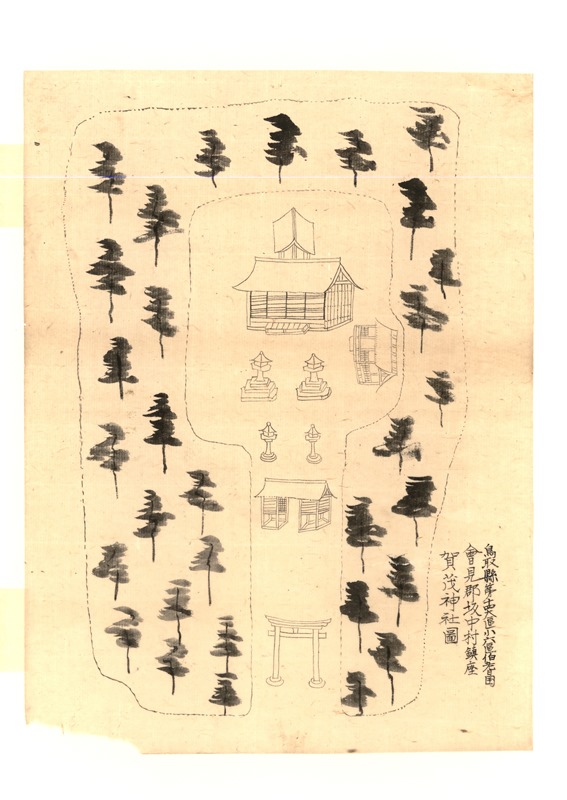 鳥取縣第十四大區小六區伯耆国
會見郡坂中村鎮座
賀茂神社圖